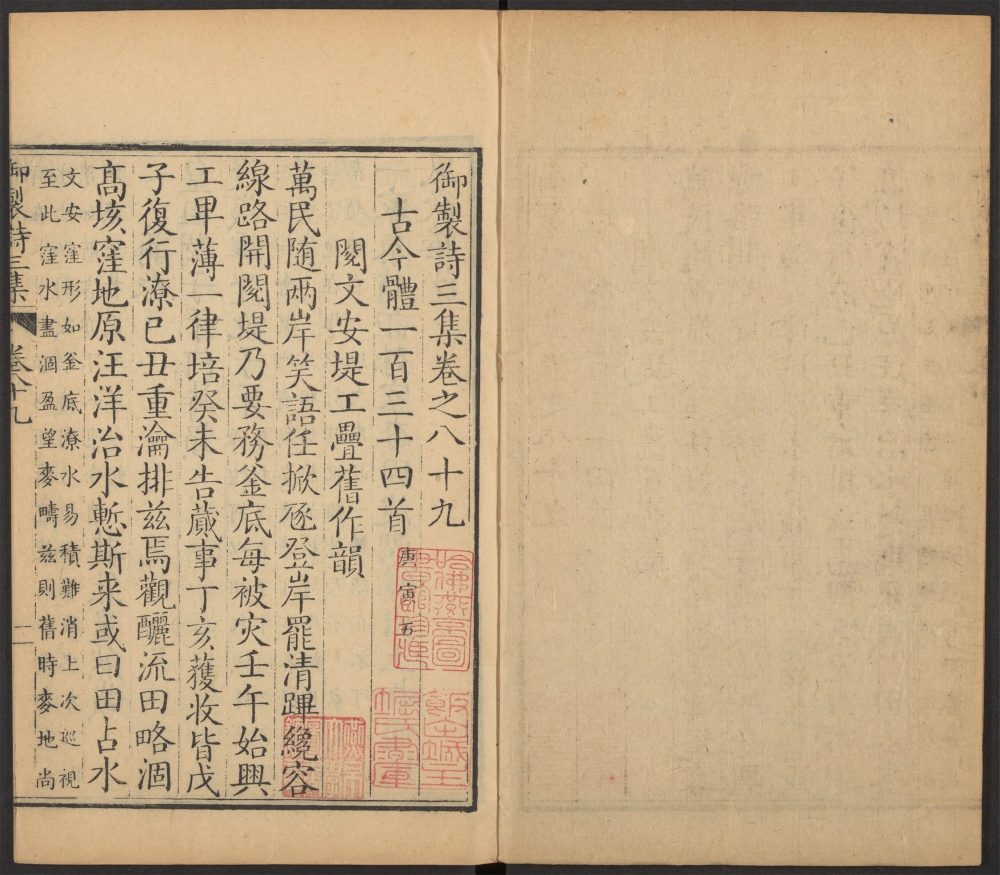 御製詩三集卷之八十九
古今體一百三十四首
庚寅五
閱文安堤工疊舊作韻
萬民随兩岸笑語任掀豗登岸罷清蹕纔容
線路開閱堤乃要務釜底每被灾壬午始興
工甲薄一律培癸未告蕆事丁亥蓷收皆戊
子復行潦已丑重瀹排兹焉觀釃流田略涸
髙垓窪地原汪洋治水慙斯来或曰田占水
文安窪形如釜底潦水易積難消上次廵視
至此窪水盡涸盈望麥疇兹則舊時麥地尚
御製詩三集
卷八十九
一